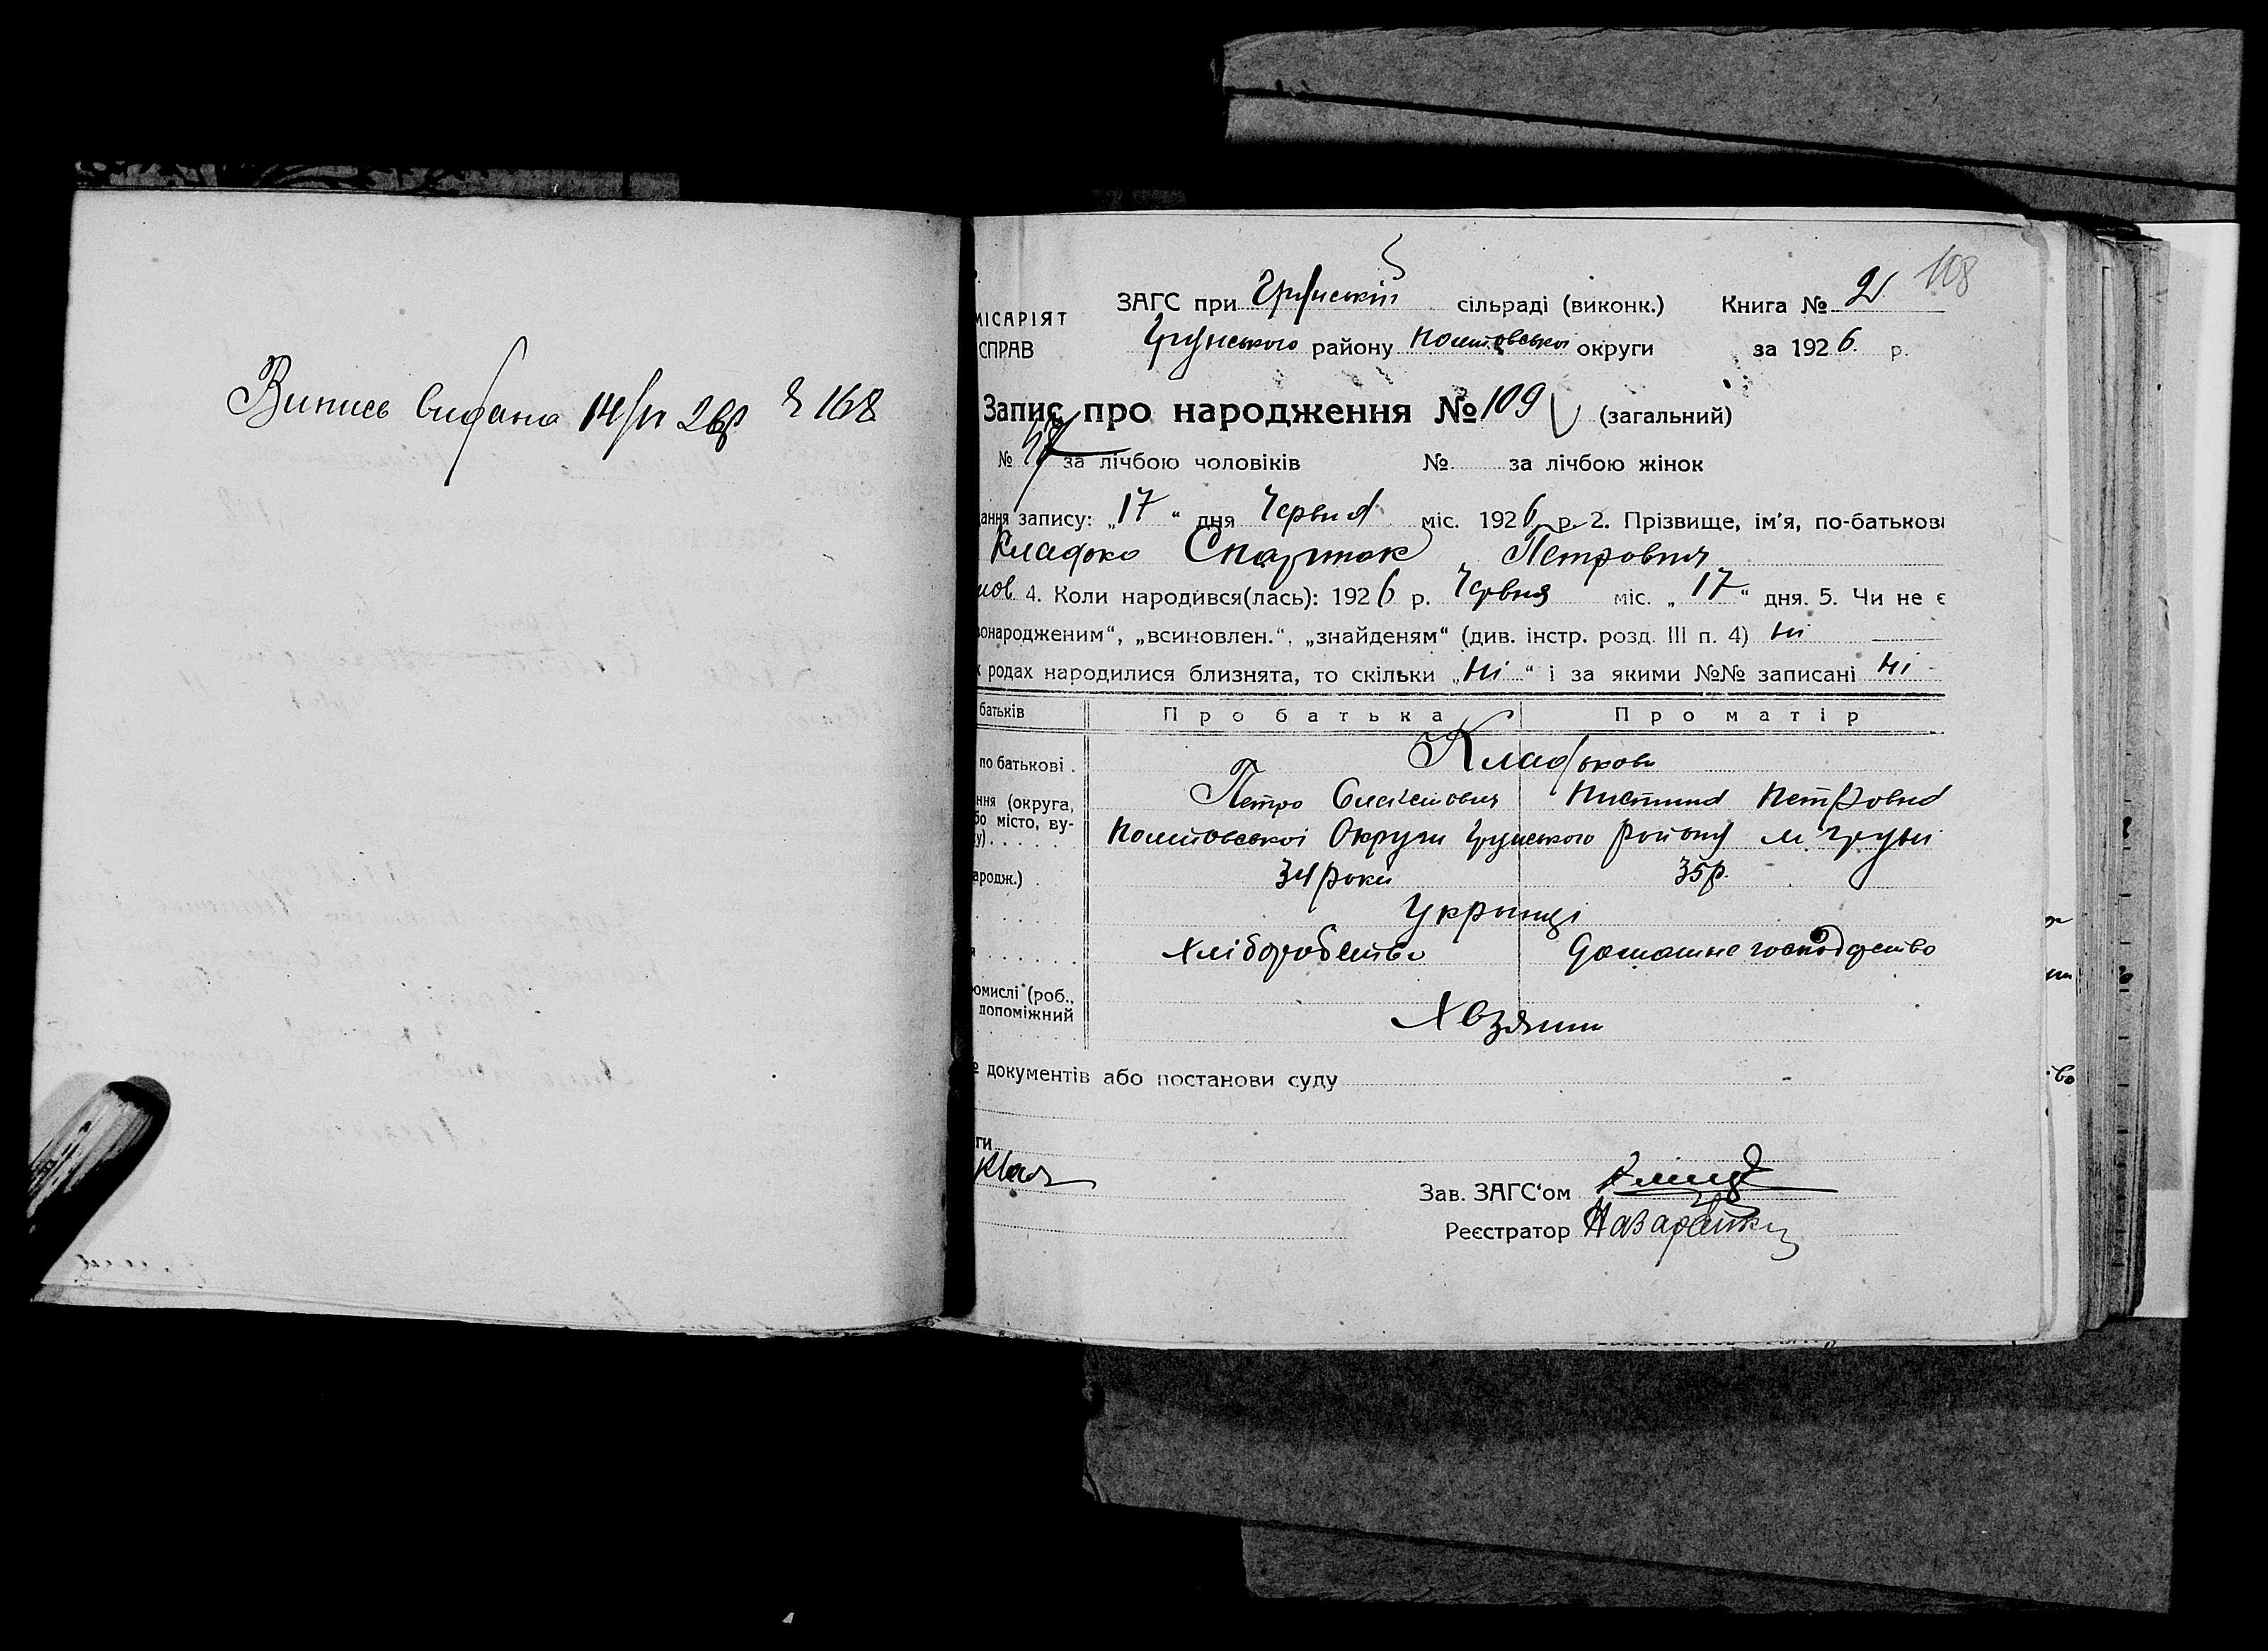 Випись видана 14/VI 26р № 168
108
ЗАГС при Грунській сільраді (виконк.) Книга № 2
МІСАРІЯТ
Грунського району Полтавської округи за 1926 р.
СПРАВ
Запис про народження № 109 (загальний)
№ за лічбою чоловіків № за лічбою жінок
дання запису: „17“ дня Червня міс. 1926 р. 2. Прізвище, ім'я, по-батькові
Кладько Спартак Петрович
чов. 4. Коли народився(лась): 1926 р. Червня міс. „17“ дня. 5. Чи не є
вонародженим“, „всиновлен.“, „знайденям“ (див. інстр. розд. III п. 4) Ні
х родах народилися близнята, то скільки „Ні“ і за якими №№ записані Ні
батьків Про батька Про матір
по батькові . Кладькови
ння (округа, Петро Петровна
бо місто, ву-
у) . . . . . Округи Грунського району м Груні
ародж.) . 34 роки 35р.
Українці
я . . . . . . Хліборобство домашнє господарство
омислі (роб.,
допоміжний
Хазяїни
№ документів або постанови суду
ги
Зав. ЗАГС'ом
Реєстратор